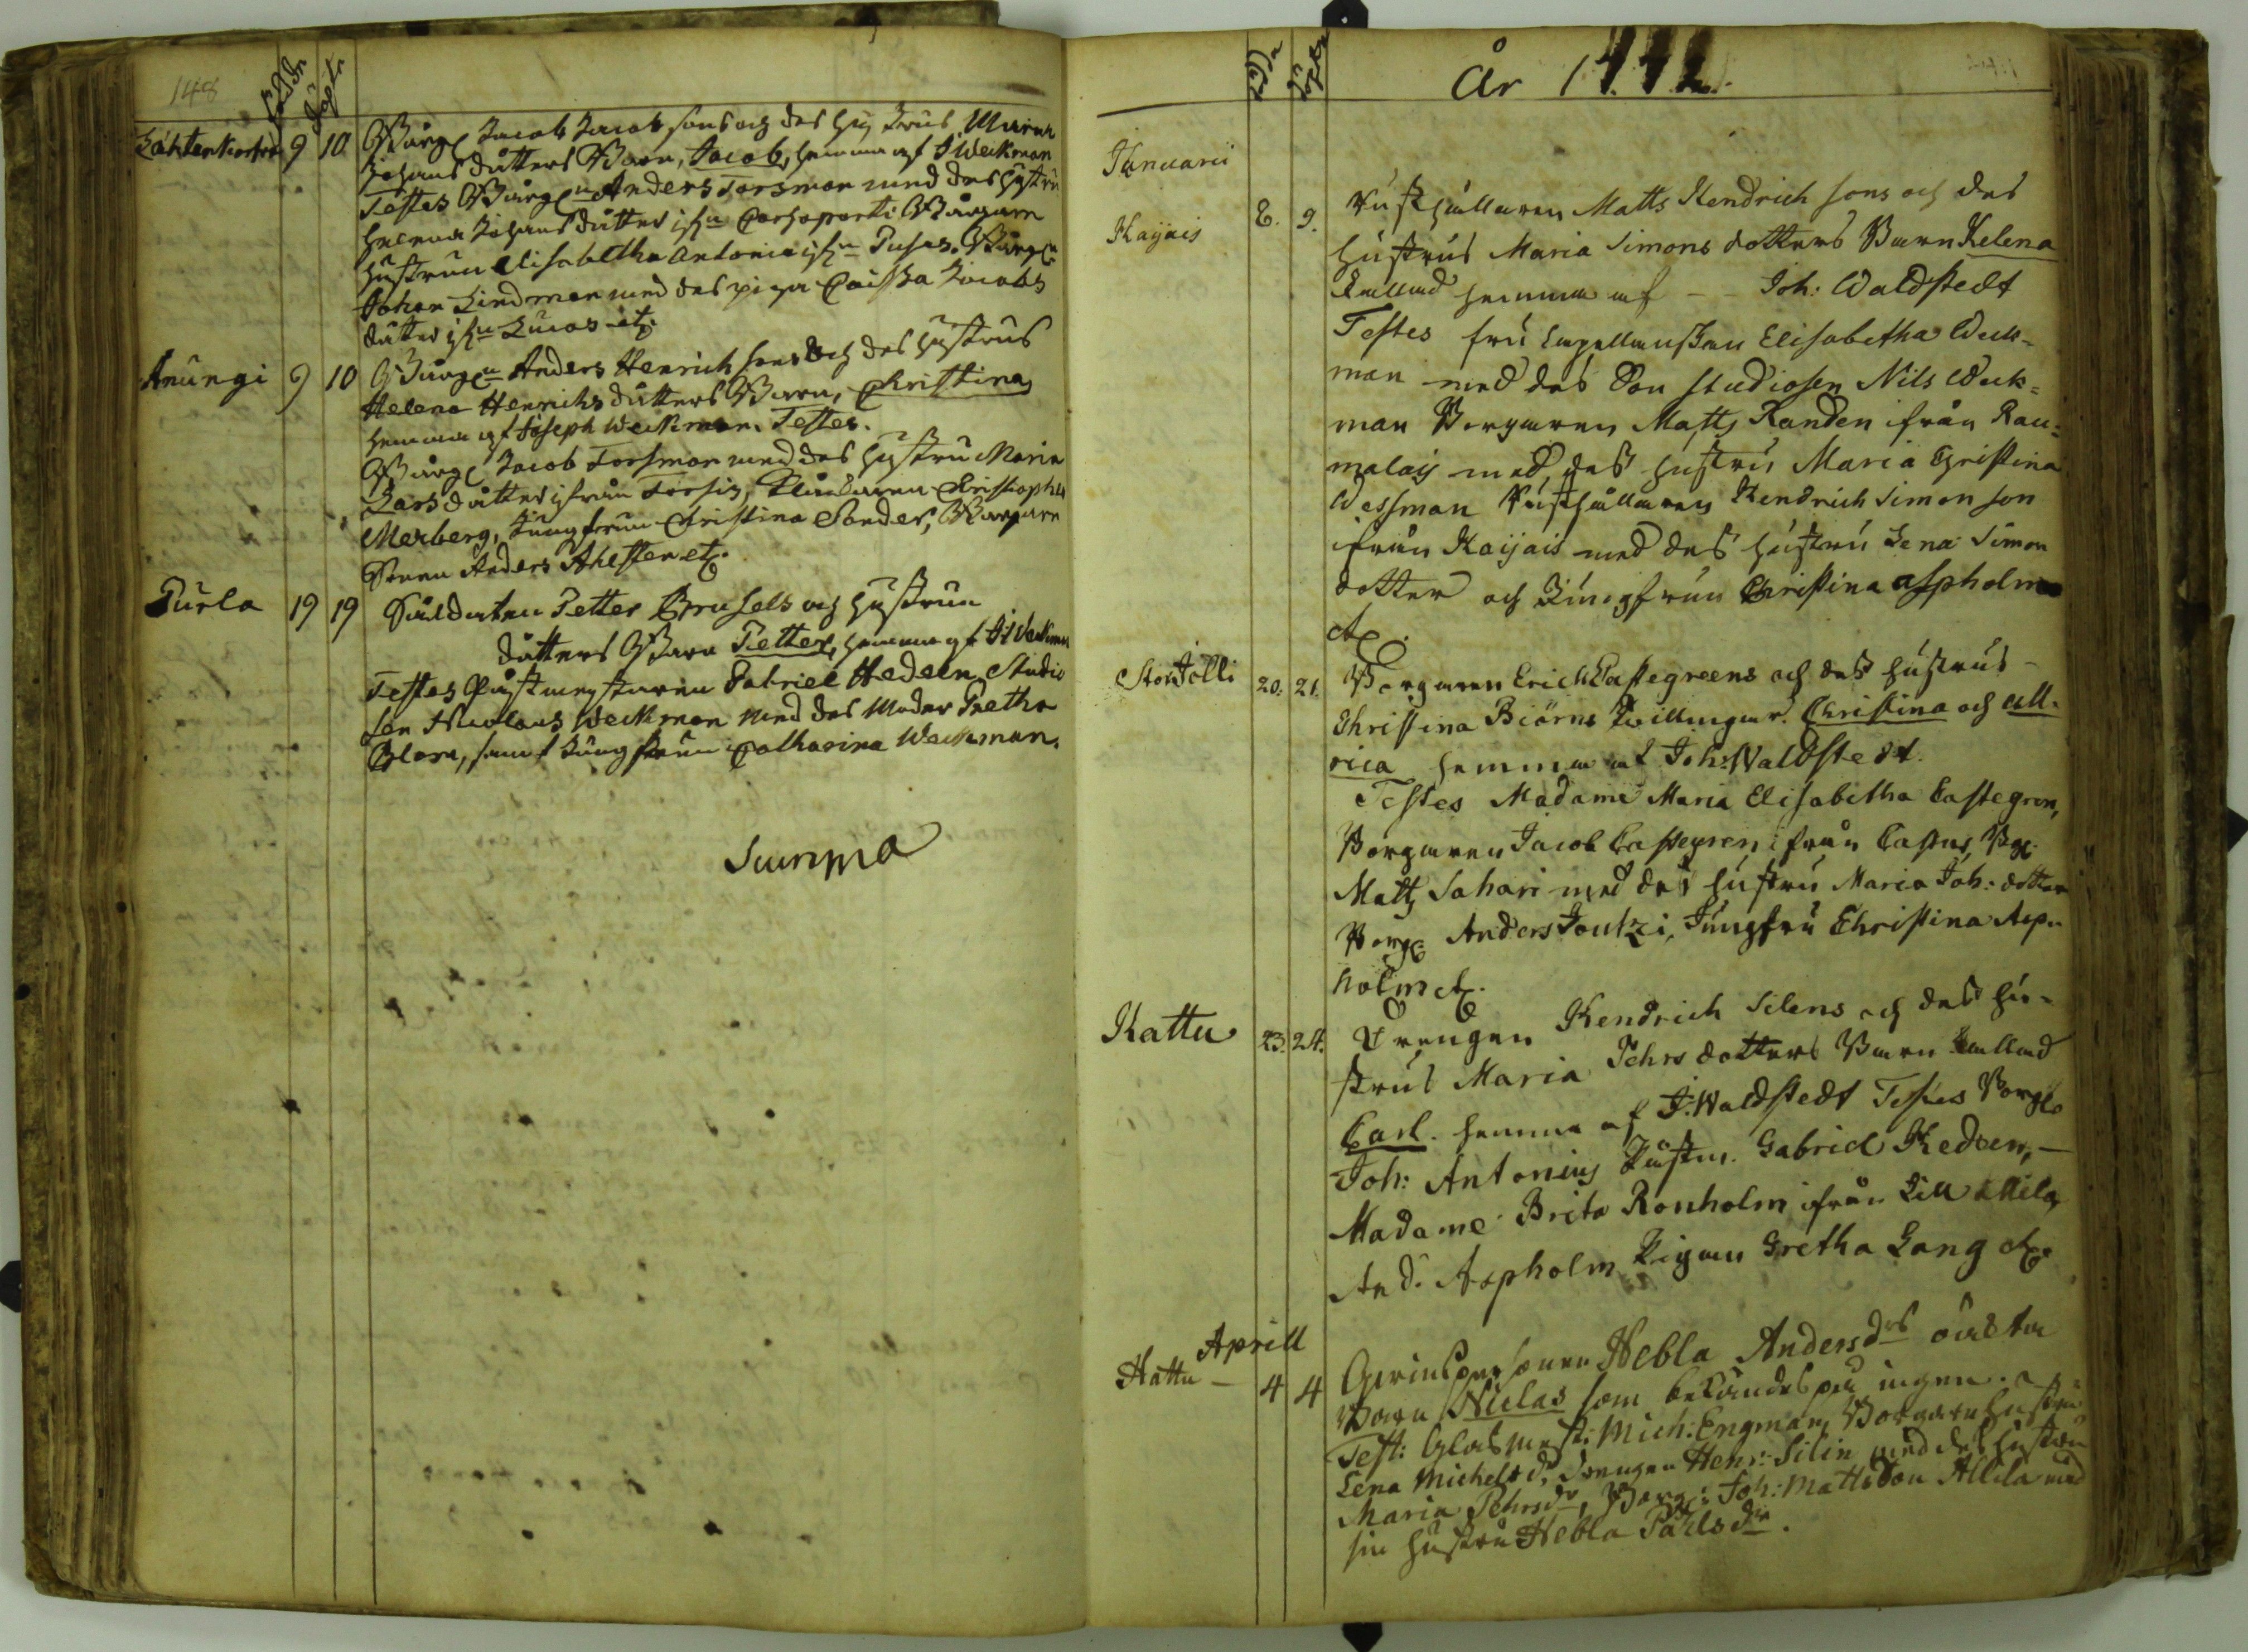 148
Födde
Döpte
Lahtenkorfva 9 10 Bårg: Jacob Jacobsons och des hustrus Maria
Johans dåtters Barn, Jacob, hemma af J Weckman
Testes Bårg:n Anders Forsman med des hustru
Helena Johans dåtter ifn Carhoparti Bårgare
hustrun Elisabetha Antonia ifn Puhas. Bårg:n
Johan Lindman med des piga Caisha Jacobs
dåtter ifn Lucas etc.
Anungi 9 10 Bårg:n Anders Henrichsons och des hustrus
Helena Henrichs dåtters Barn, Christina,
hemma af Joseph Weckman. Testes.
Bårg: Jacob Forsman med des hustru Maria
Lars dåtter ifrån Forsis, Christopher
Merberg, Jungfrun Christina Sonder, Bårgare
Sonen Anders Ahlsten etc.
Purla 19 19 Såldaten Petter Brusels och hustrun
dåtters Barn Petter, hemma af J Weckman
Testes Påstmestaren Gabriel Hedeen, Studio
sen Nicolaus Weckman med des Moder Gretha
Blom, samt Jungfrun Catharina Weckman.
Summa
Födde
Döpte
År 1772.
Januarii
Kaijais 8. 9. Rusthållaren Matts Hendrich sons och des
hustrus Maria Simons dotters Barn Helena
kallad hemma af - - Joh: Waldstedt
Testes fru Capellanskan Elisabetha Weck=
man med des Son studiosen Nils Weck=
man Borgaren Matts Randen ifrån Rau=
malais med des hustru Maria Christina
Wessman Rusthållaren Hendrich Simon son
ifrån Kaijais med des hustru Lena Simon
dotter och Jungfrun Christina Aspholm
etc.
StorJolli 20. 21. Borgaren Erich Castegreens och des hustrus
Christina Biörns Twillingar. Christina och Ull=
rica hemma af Joh: Waldstedt.
Testes Madame Maria Elisabetha Castegren,
Borgaren Jacob Castegren ifrån Castus, Bg:
Matts Sahari med des hustru Maria Joh: dotter
Borg: Anders Joutzi, Jungfru Christina Asp=
holm etc.
Kattu 23. 24. Drengen Hendrich Silens och des hu=
strus Maria Pehrs dotters Barn kallad
Carl. hemma af J: Waldstedt Testes Borg:
Joh: Antonius Påstm. Gabriel Hedeen, -
Madame Brita Ronholm ifrån Lill Allila
And: Aspholm Pigan Gretha Lang etc.
Aprill
Kattu - 4 4 Qwinspersonen Hebla Andersdrs oäckta
Barn Niclas som bekändes på ingen.
Test: Glasmest: Mich: Engman, Borgarehustru
Lena Michelsdr, Drengen Henr: Silin med des hustru
Maria Pehrsdr, Borg: Joh: Mattsson Allila med
sin hustru Hebla Påhlsdr.